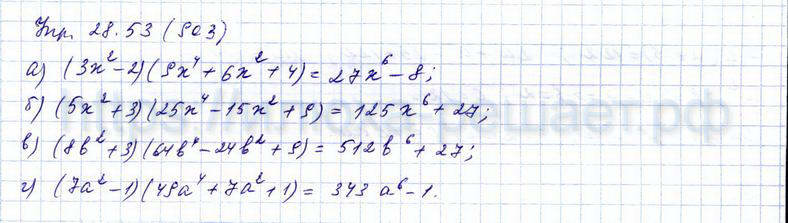 Упр. 28.53 (903)
а) (3x² - 2)(9x⁴ + 6x² + 4) = 27x⁶ - 8;
б) (5x² + 3)(25x⁴ - 15x² + 9) = 125x⁶ + 27;
в) (8b² + 3)(64b⁴ - 24b² + 9) = 512b⁶ + 27;
г) (7a² - 1)(49a⁴ + 7a² + 1) = 343a⁶ - 1.